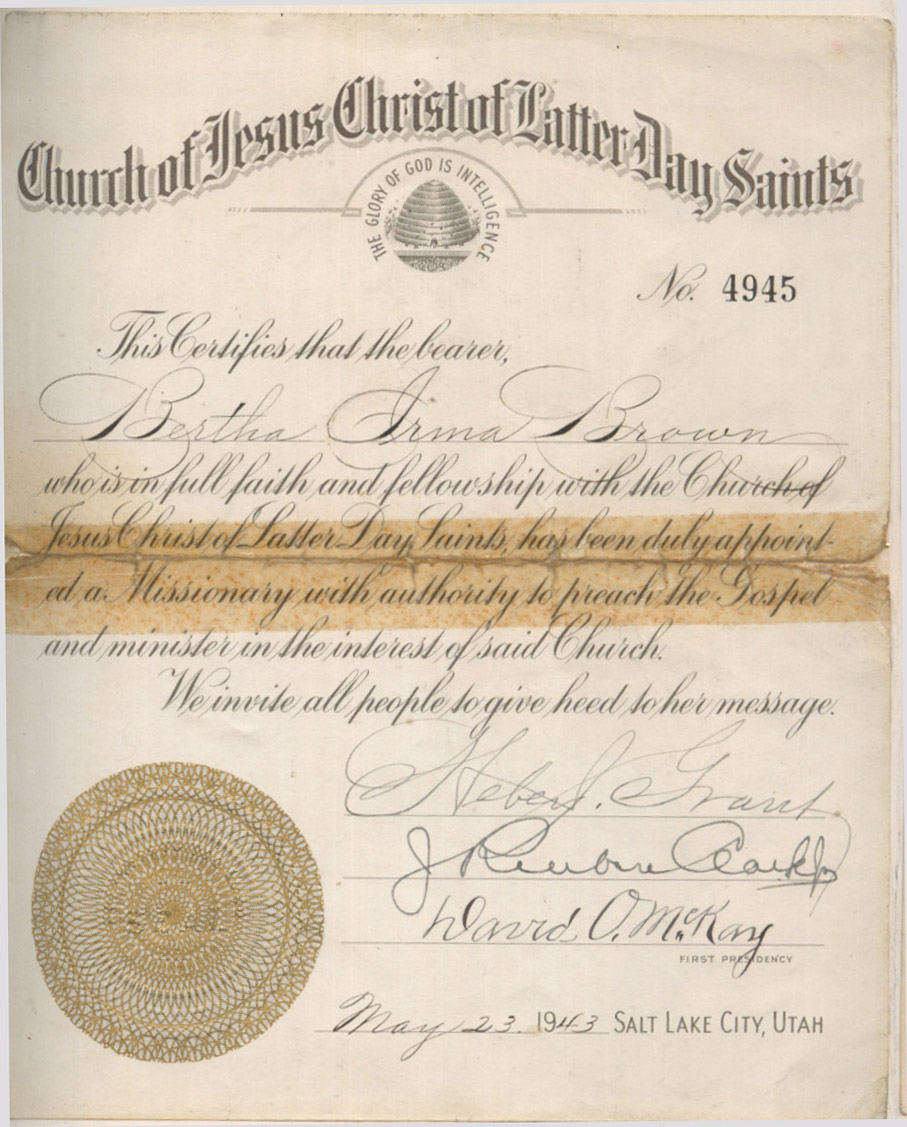 Church of Jesus Christ of Latter Day Saints
THE GLORY OF GOD IS INTELLIGENCE
No. 4945
This Certifies that the bearer,
Bertha Irma Brown
who is in full faith and fellowship with the Church of
Jesus Christ of Latter Day Saints, has been duly appoint-
ed a Missionary with authority to preach the Gospel
and minister in the interest of said Church.
We invite all people to give heed to her message.
Heber J. Grant
J Reuben Clark Jr
David O. McKay
FIRST PRESIDENCY
May 23. 1943 SALT LAKE CITY, UTAH